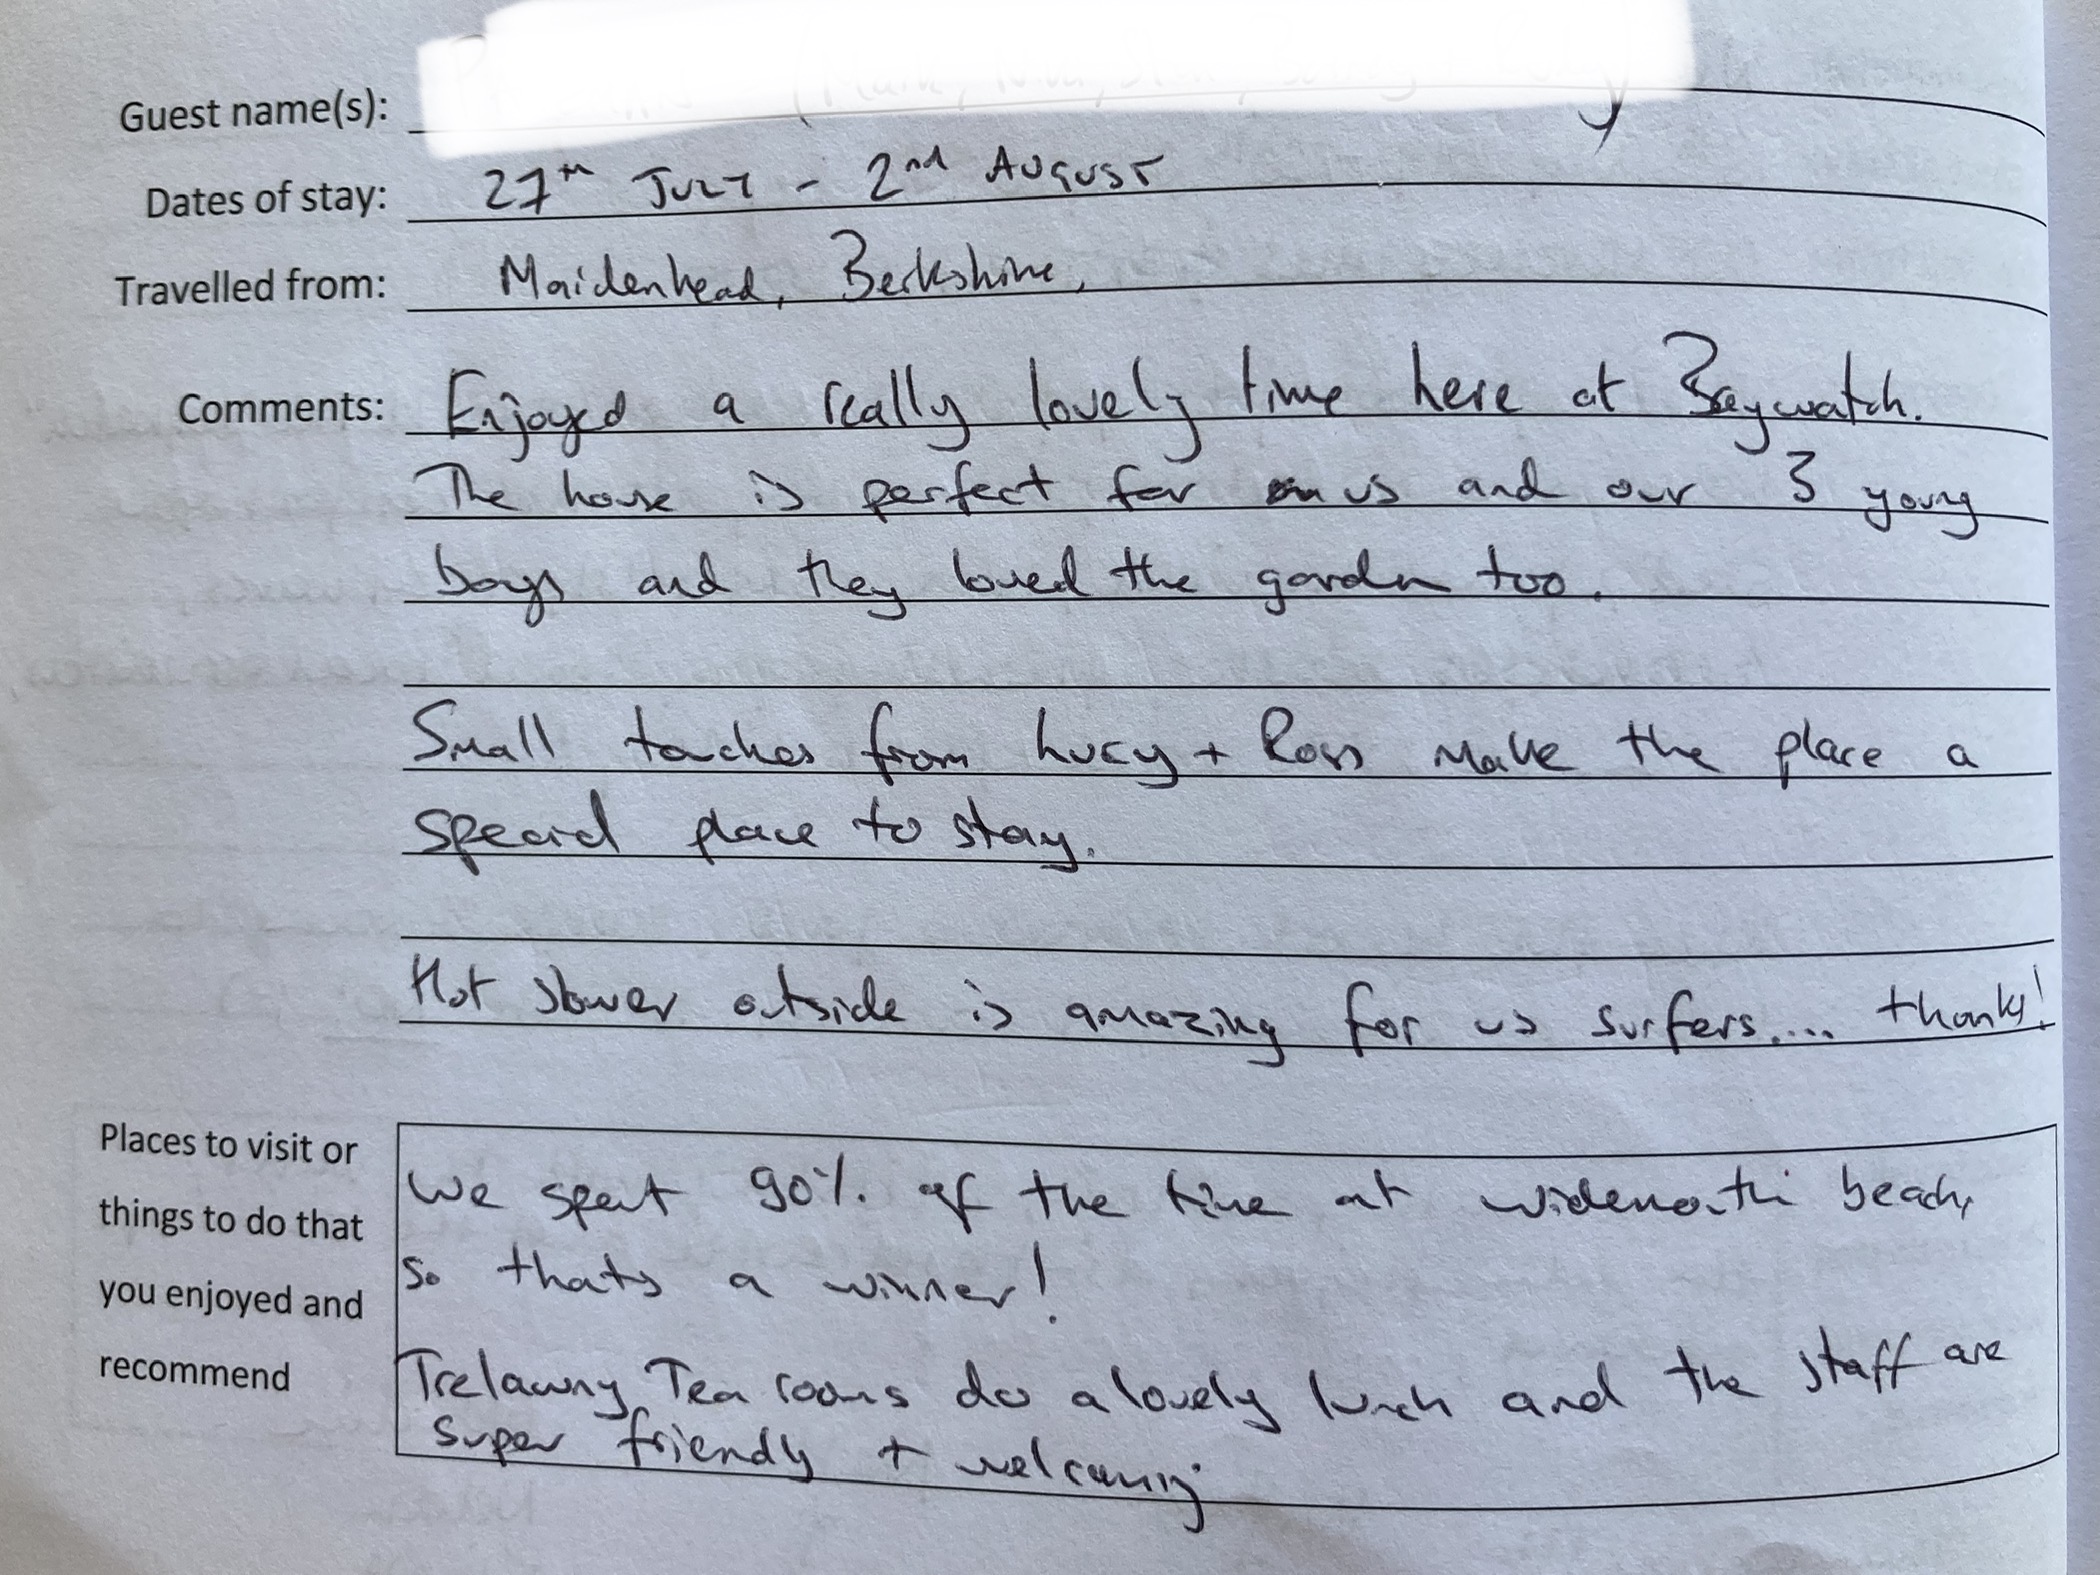 Guest name(s):
Dates of stay: 27th JULY - 2nd AUGUST
Travelled from: Maidenhead, Berkshire,
Comments: Enjoyed a really lovely time here at Baywatch.
The house is perfect for us and our 3 young
boys and they loved the garden too.
Small touches from Lucy + Ross make the place a
special place to stay.
Hot shower outside is amazing for us surfers.... thanks!
Places to visit or
things to do that
you enjoyed and
recommend
We spent 90% of the time at widemouth beach,
so thats a winner!
Trelawny Tea rooms do a lovely lunch and the staff are
super friendly + welcoming.